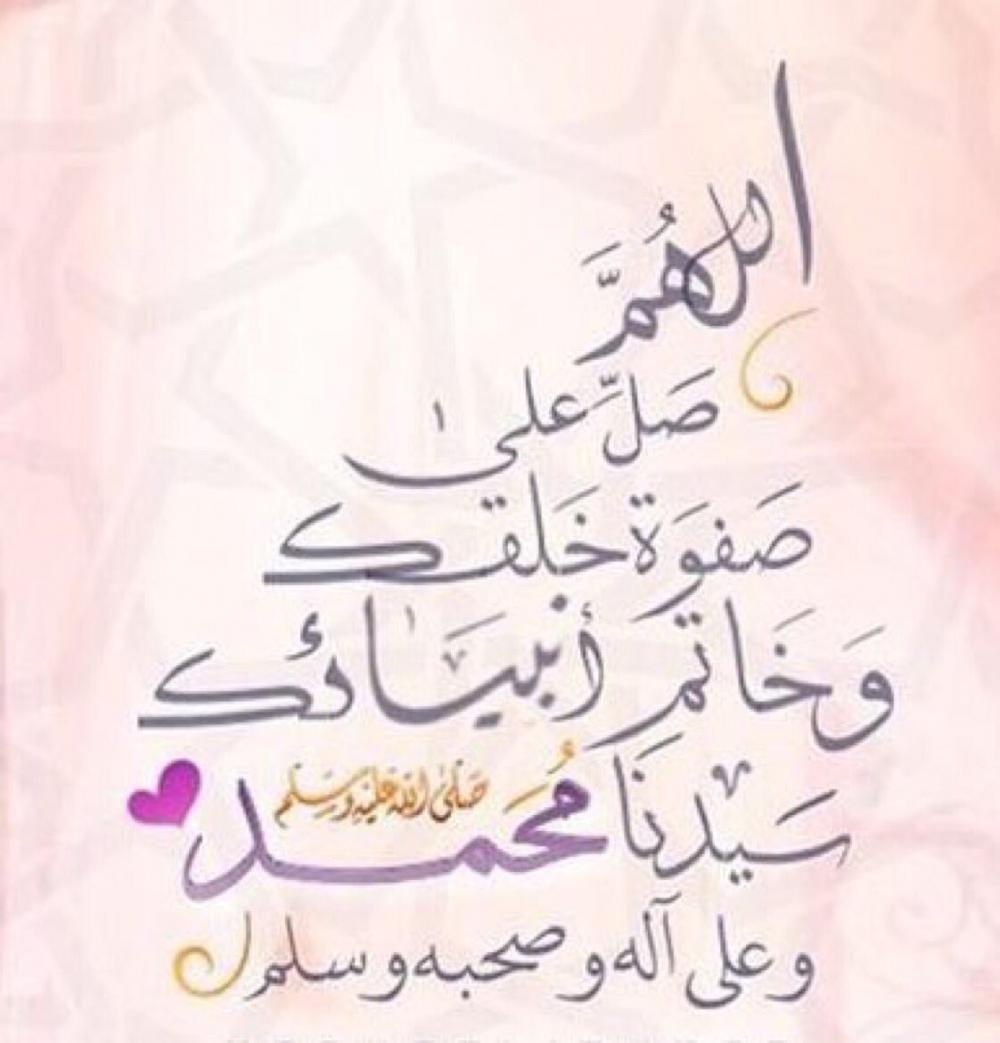 اللهُمَّ
صَلِّ على
صَفوَة خَلقك
وَخَاتم أنبيَائك
سَيدنَا مُحَمد صَلىٰ اللهُ عَليْهِ وَسَلم
و على آله و صحبه و سلم